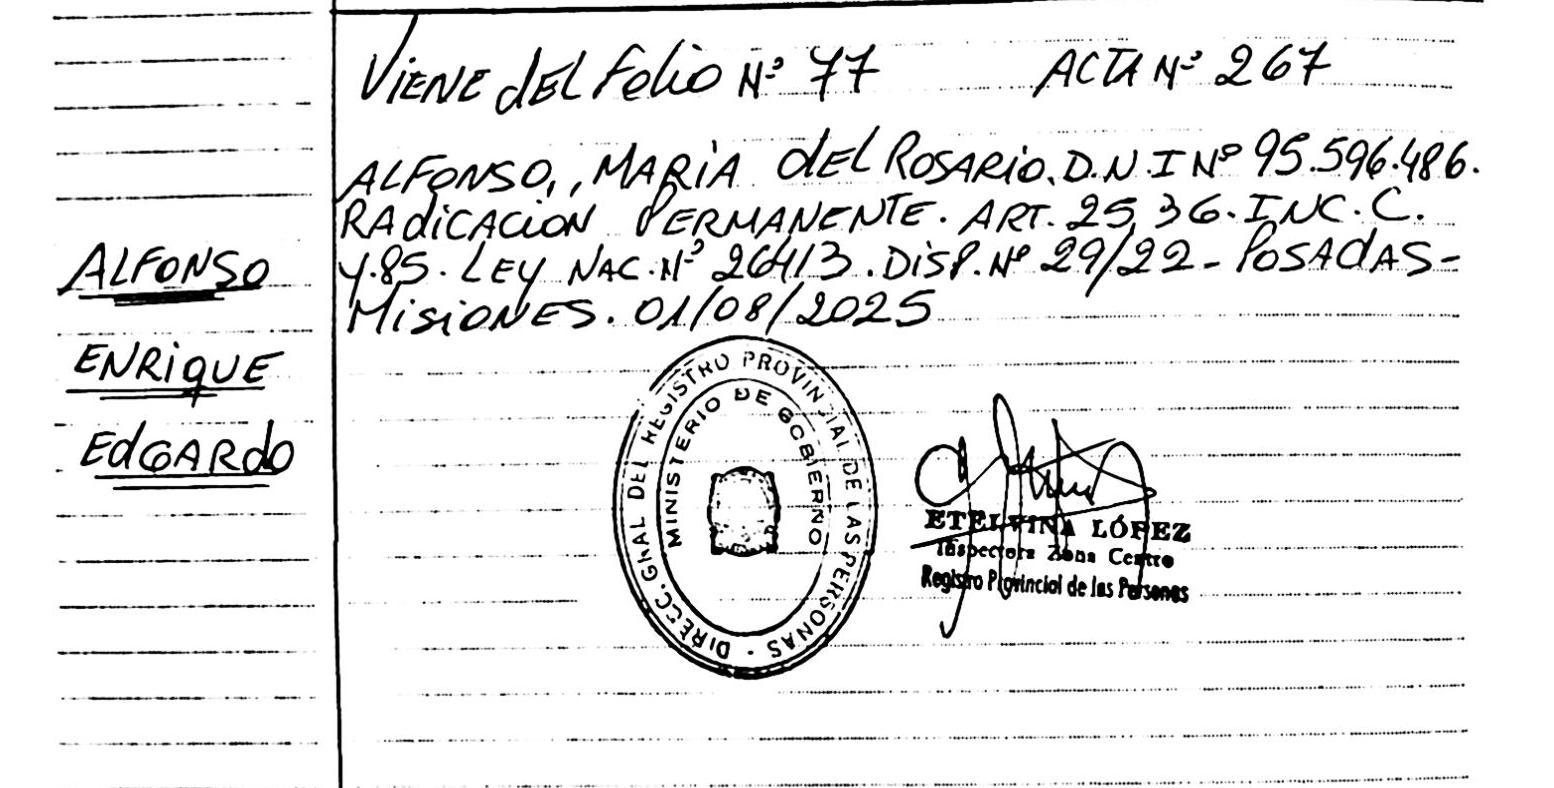 VIENE dEL Folio Nº 77 ACTA Nº 267
ALFONSO, MARIA dEL ROSARIO. D.N.I Nº 95.596.486.
RAdicACION PERMANENTE. ART. 25, 36. INC. C.
Y.85. LEY NAC. Nº 26413. DISP. Nº 29/22 - POSADAS -
MisiONES. 01/08/2025
ALFONSO
ENRiqUE
EdGARdo
DIRECC. GRAL DEL REGISTRO PROVINCIAL DE LAS PERSONAS
MINISTERIO DE GOBIERNO
ETELVINA LÓPEZ
Inspectora Zona Centro
Registro Provincial de las Personas